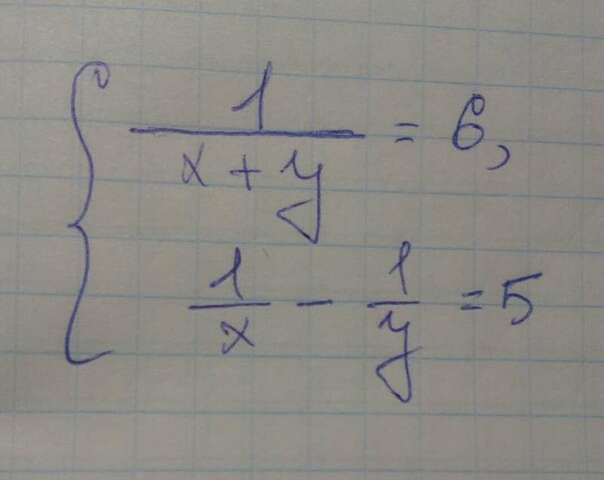 1/(x+y) = 6,
1/x - 1/y = 5